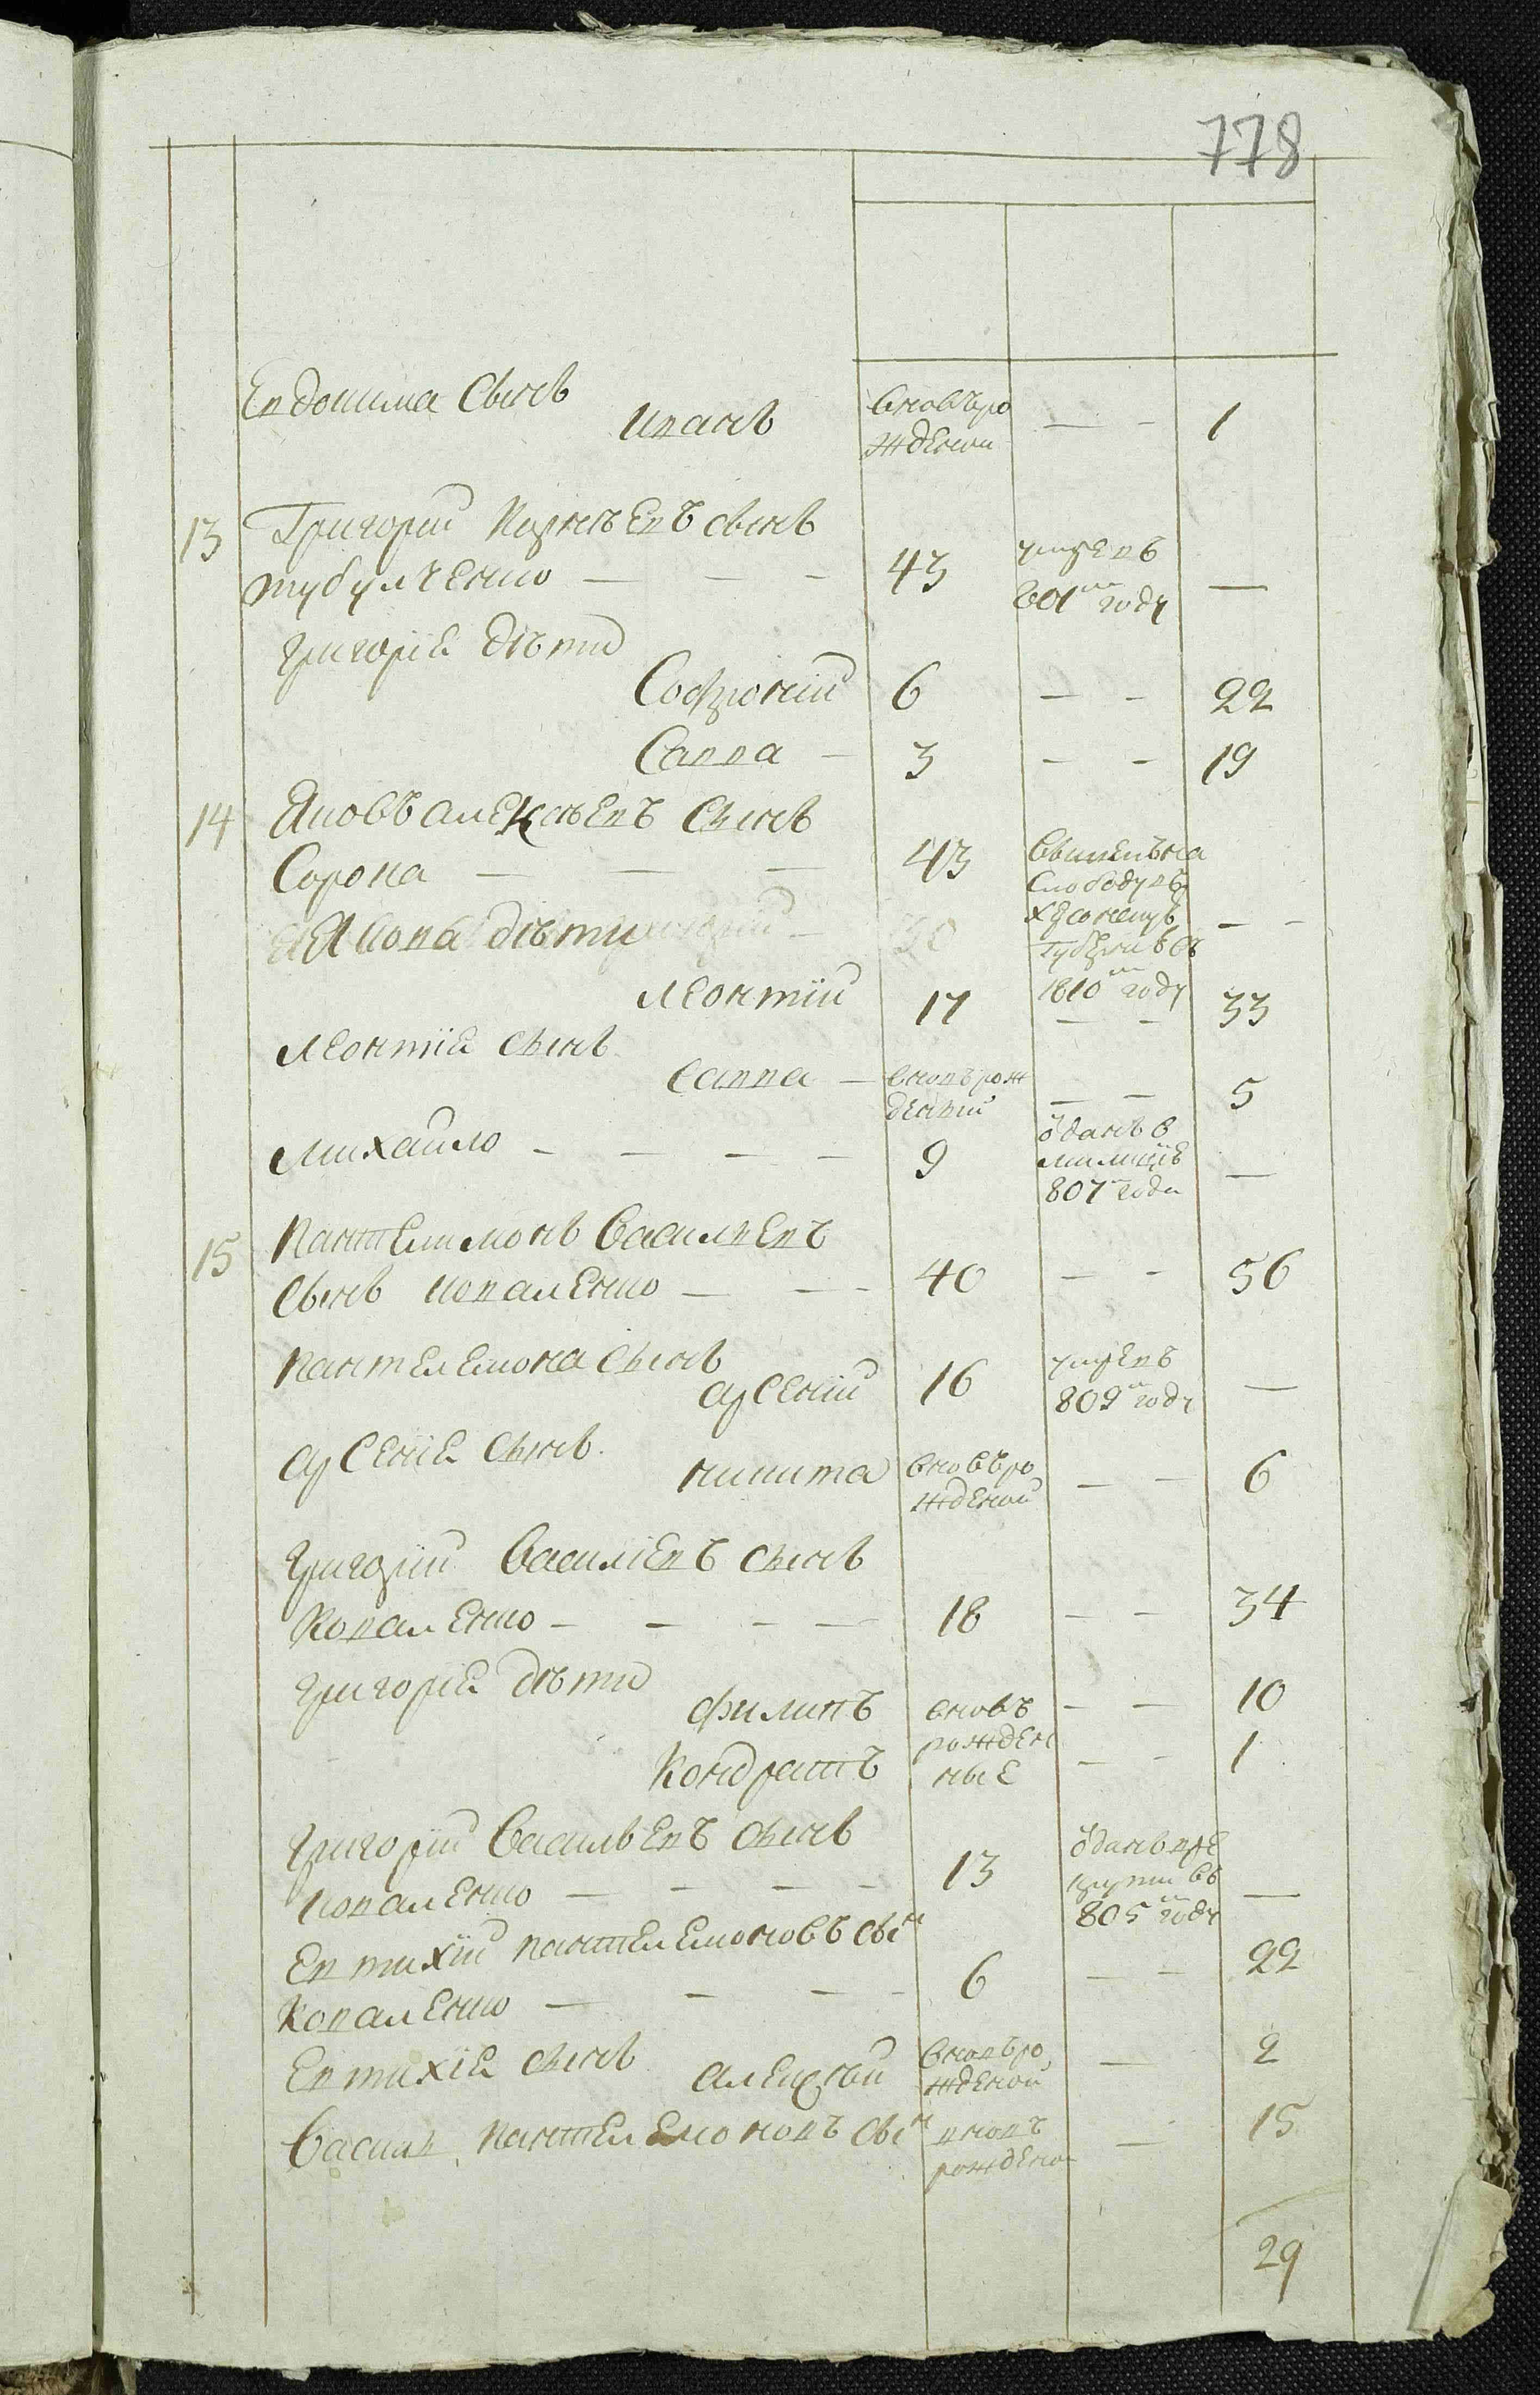 778
Евдокима Сынъ
Иванъ вновъро - - 1
жденои
13 Григорий Корнѣевъ сынъ
тубулченко - - - 43 умревъ -
801м году
григорiя дѣти
Софроний 6 - - 22
Савва - 3 - - 19
14 Яковъ алексѣевъ Сынъ
Сорока - - - 43 вышелъ на
Слободу въ
Якова дѣти 30 херсонскую - -
губернию въ
Леонтий 17 1810м году 33
- -
Леонтiя сынъ
Савва - вновърож - - 5
деный
Михайло - - - - 9 оданъ в -
милицiю
807 года
15 Пантелимонъ Василиевъ
Сынъ коваленко - - - 40 - - 56
Пантелемона сынъ
арсений 16 умревъ -
809м году
арсения сынъ
никита вновъро - - 6
жденой
григорий Василиевъ сынъ
Коваленко - - - - 18 - - 34
григорiя дѣти
филипъ вновъ - - 10
рожден
Кондратъ ные - - 1
григорий Васильевъ сынъ
коваленко - - - - 13 оданъ в ре -
крути въ
805м году
Евтихий пантелемоновъ сын
Коваленко - - - - 6 - - 22
Евтихiя сынъ
алексѣй вновъро - 2
жденой
Васили Пантелемоновъ сын вновъ - 15
рождено
29